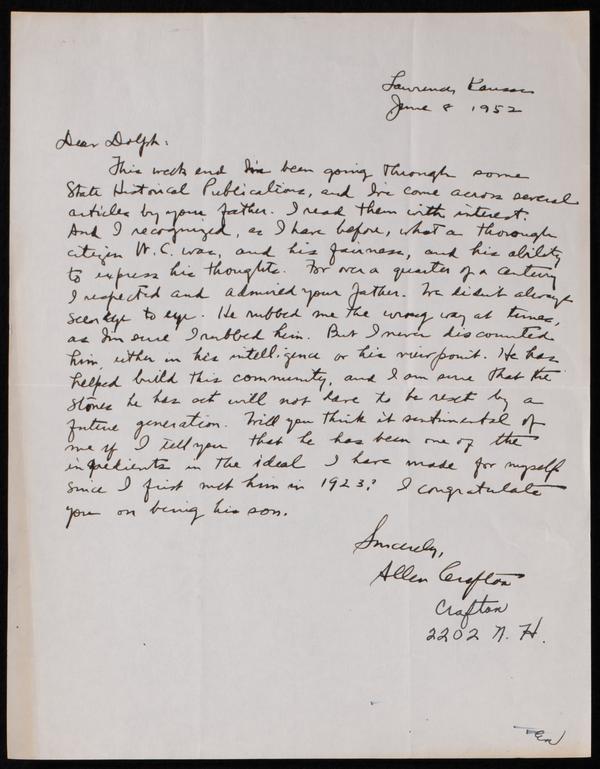 Lawrence, Kansas
June 8 1952
Dear Dolph:
This week end I've been going through some
State Historical Publications, and I've come across several
articles by your father. I read them with interest.
And I recognized, as I have before, what a thorough
citizen W. C. was, and his fairness, and his ability
to express his thoughts. For over a quarter of a century
I respected and admired your father. We didn't always
see eye to eye. He rubbed me the wrong way at times,
as I'm sure I rubbed him. But I never discounted
him, either in his intelligence or his viewpoint. He has
helped build this community, and I am sure that the
stones he has set will not have to be reset by a
future generation. Will you think it sentimental of
me if I tell you that he has been one of the
ingredients in the ideal I have made for myself
since I first met him in 1923? I congratulate
you on being his son.
Sincerely,
Allen Crafton
Crafton
2202 N. H.